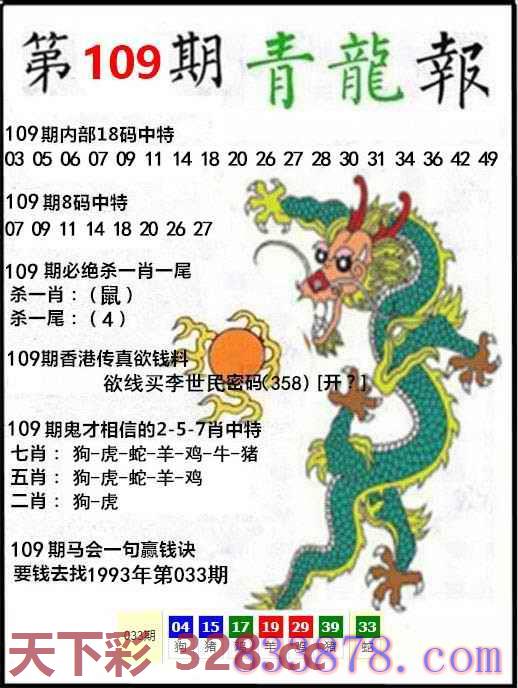 第109期青龍報
109期内部18码中特
03 05 06 07 09 11 14 18 20 26 27 28 30 31 34 36 42 49
109期8码中特
07 09 11 14 18 20 26 27
109期必绝杀一肖一尾
杀一肖：(鼠)
杀一尾：(4)
109期香港传真欲钱料
欲线买李世民密码(358) [开？]
109期鬼才相信的2-5-7肖中特
七肖：狗-虎-蛇-羊-鸡-牛-猪
五肖：狗-虎-蛇-羊-鸡
二肖：狗-虎
109期马会一句赢钱诀
要钱去找1993年第033期
033期 04 15 17 19 29 39 33
狗 猪 鸡 羊 鸡 猪 蛇
天下彩 328.cc
833878.com